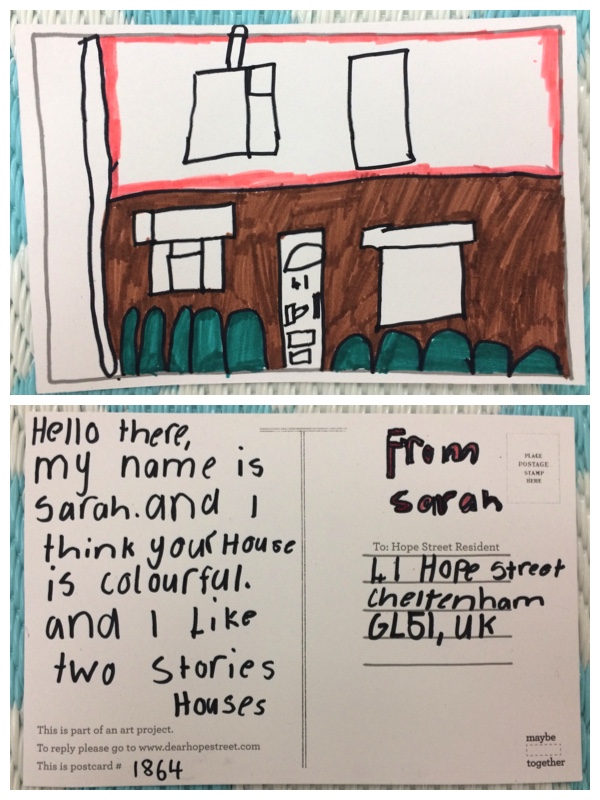 41
Hello there,
my name is
Sarah. and I
think your House
is colourful.
and I Like
two Stories
Houses
This is part of an art project.
To reply please go to www.dearhopestreet.com
This is postcard # 1864
From
Sarah
PLACE
POSTAGE
STAMP
HERE
To: Hope Street Resident
41 Hope Street
Cheltenham
GL51, UK
maybe
together